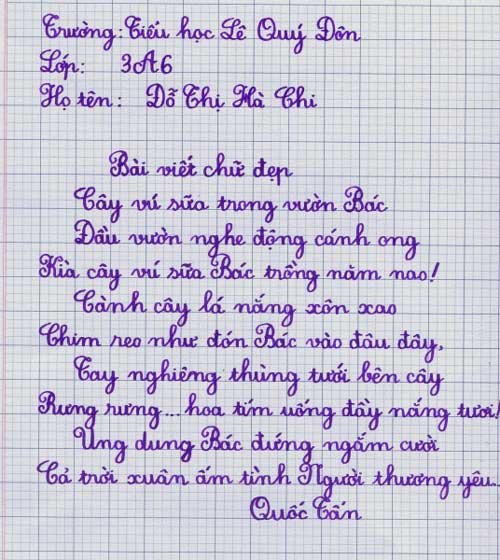 Trường: Tiểu học Lê Quý Đôn
Lớp: 3A6
Họ tên: Đỗ Thị Hà Chi
Bài viết chữ đẹp
Cây vú sữa trong vườn Bác
Đầu vườn nghe động cánh ong
Kìa cây vú sữa Bác trồng năm nao!
Cành cây lá nắng xôn xao
Chim reo như đón Bác vào đâu đây,
Tay nghiêng thùng tưới bên cây
Rưng rưng... hoa tím uống đầy nắng tươi!
Ung dung Bác đứng ngắm cười
Cả trời xuân ấm tình Người thương yêu...
Quốc Tấn